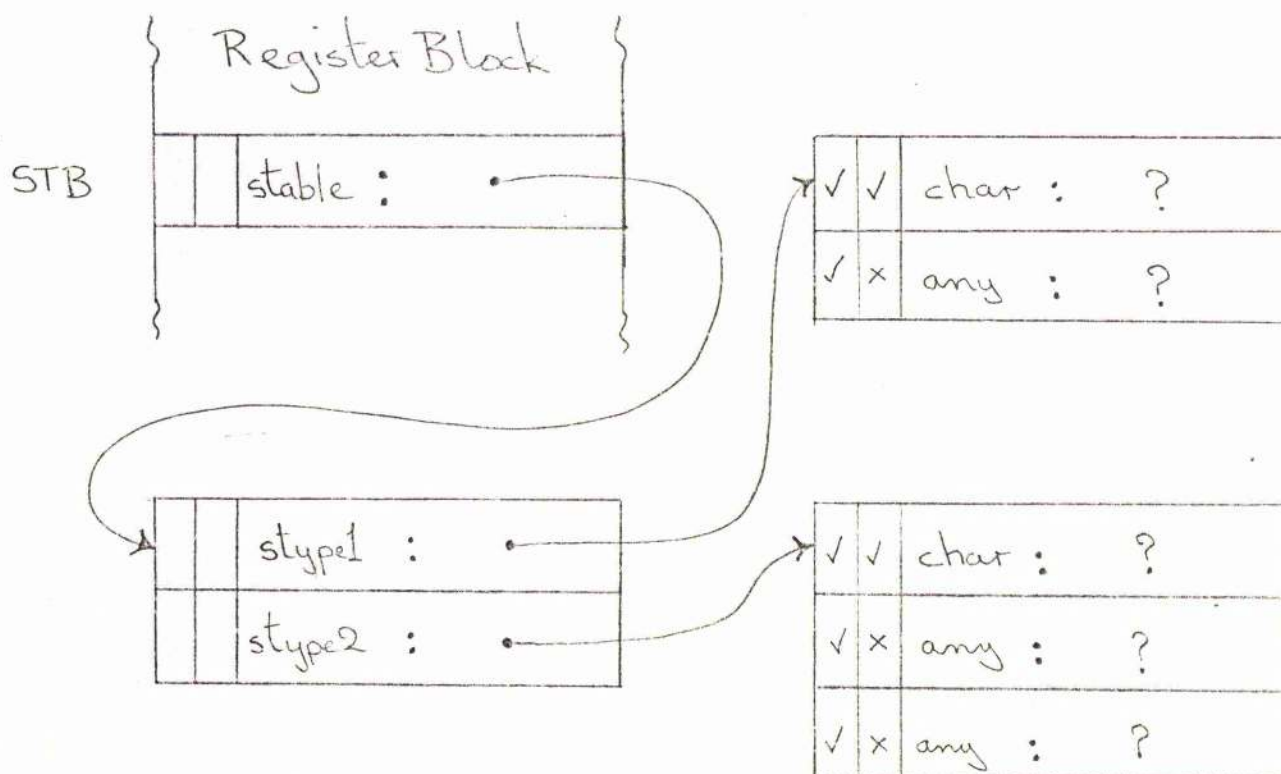 Register Block
STB
stable :
✓ ✓ char : ?
✓ × any : ?
stype1 :
stype2 :
✓ ✓ char : ?
✓ × any : ?
✓ × any : ?